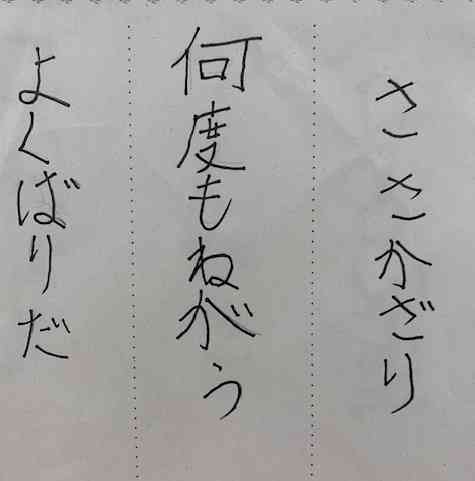 ささかざり
何度もねがう
よくばりだ